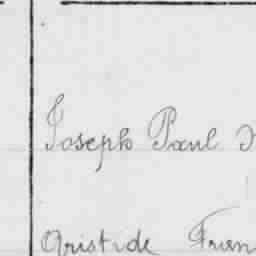 Joseph Paul
Aristide Fran